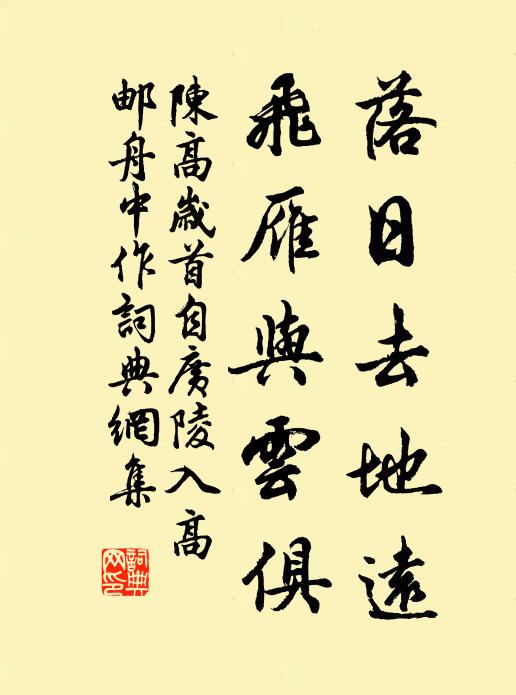 落日去地遠
飛雁與雲俱
陳高歲首自廣陵入高
郵舟中作詞典網集
詞典網印